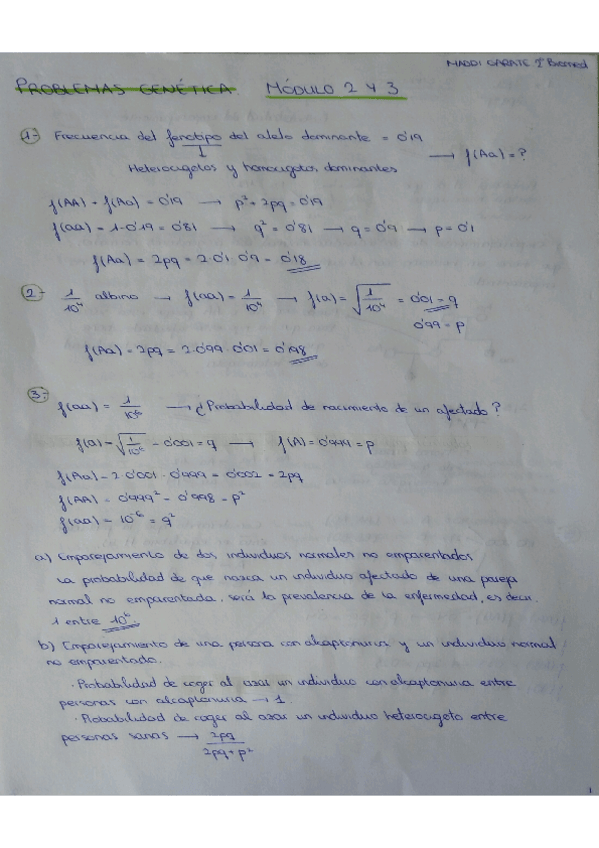 MADDI GARATE 1º Biomed
PROBLEMAS GENÉTICA MÓDULO 2 Y 3
1- Frecuencia del fenotipo del alelo dominante = 0'19
↓
Heterocigotos y homocigotos dominantes → f(Aa) = ?
f(AA) + f(Aa) = 0'19 → p² + 2pq = 0'19
f(aa) = 1 - 0'19 = 0'81 → q² = 0'81 → q = 0'9 → p = 0'1
f(Aa) = 2pq = 2·0'1·0'9 = 0'18
2- 1/10⁴ albino → f(aa) = 1/10⁴ → f(a) = √(1/10⁴) = 0'01 = q
0'99 = p
f(Aa) = 2pq = 2·0'99·0'01 = 0'198
3- f(aa) = 1/10⁶ → ¿Probabilidad de nacimiento de un afectado?
f(a) = √(1/10⁶) = 0'001 = q → f(A) = 0'999 = p
f(Aa) = 2·0'001·0'999 = 0'002 = 2pq
f(AA) = 0'999² = 0'998 = p²
f(aa) = 10⁻⁶ = q²
a) Emparejamiento de dos individuos normales no emparentados
La probabilidad de que nazca un individuo afectado de una pareja
normal no emparentada, será la prevalencia de la enfermedad, es decir,
1 entre 10⁶
b) Emparejamiento de una persona con alcaptonuria y un individuo normal
no emparentado.
· Probabilidad de coger al azar un individuo con alcaptonuria entre
personas con alcaptonuria → 1
· Probabilidad de coger al azar un individuo heterocigoto entre
personas sanas → 2pq/(2pq + p²)
1